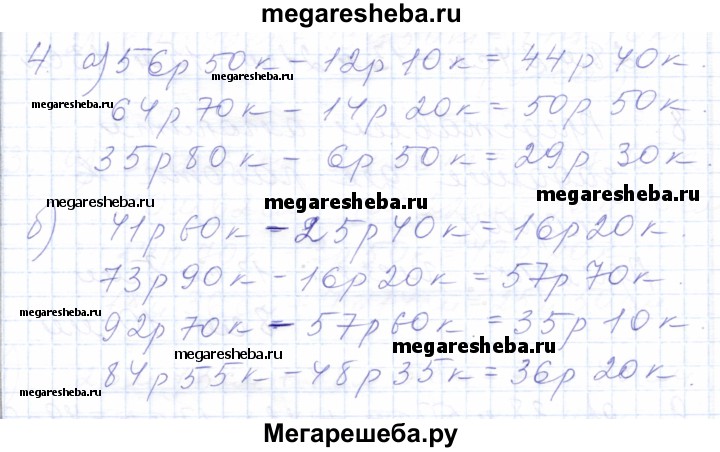 megaresheba.ru
4. а) 56р 50к - 12р 10к = 44р 40к.
megaresheba.ru
megaresheba.ru
megaresheba.ru
64р 70к - 14р 20к = 50р 50к.
35р 80к - 6р 50к = 29р 30к.
megaresheba.ru
megaresheba.ru
megaresheba.ru
б) 41р 60к - 25р 40к = 16р 20к.
73р 90к - 16р 20к = 57р 70к.
megaresheba.ru
megaresheba.ru
92р 70к - 57р 60к = 35р 10к.
megaresheba.ru
megaresheba.ru
84р 55к - 48р 35к = 36р 20к.
megaresheba.ru
Мегарешеба.ру